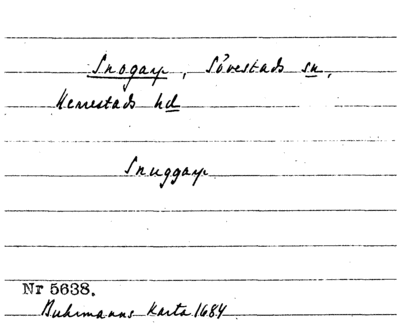 Snogarp, Sövestads sn,
Herrestads hd
Snuggarp
Nr 5638.
Buhrmanns Karta 1684